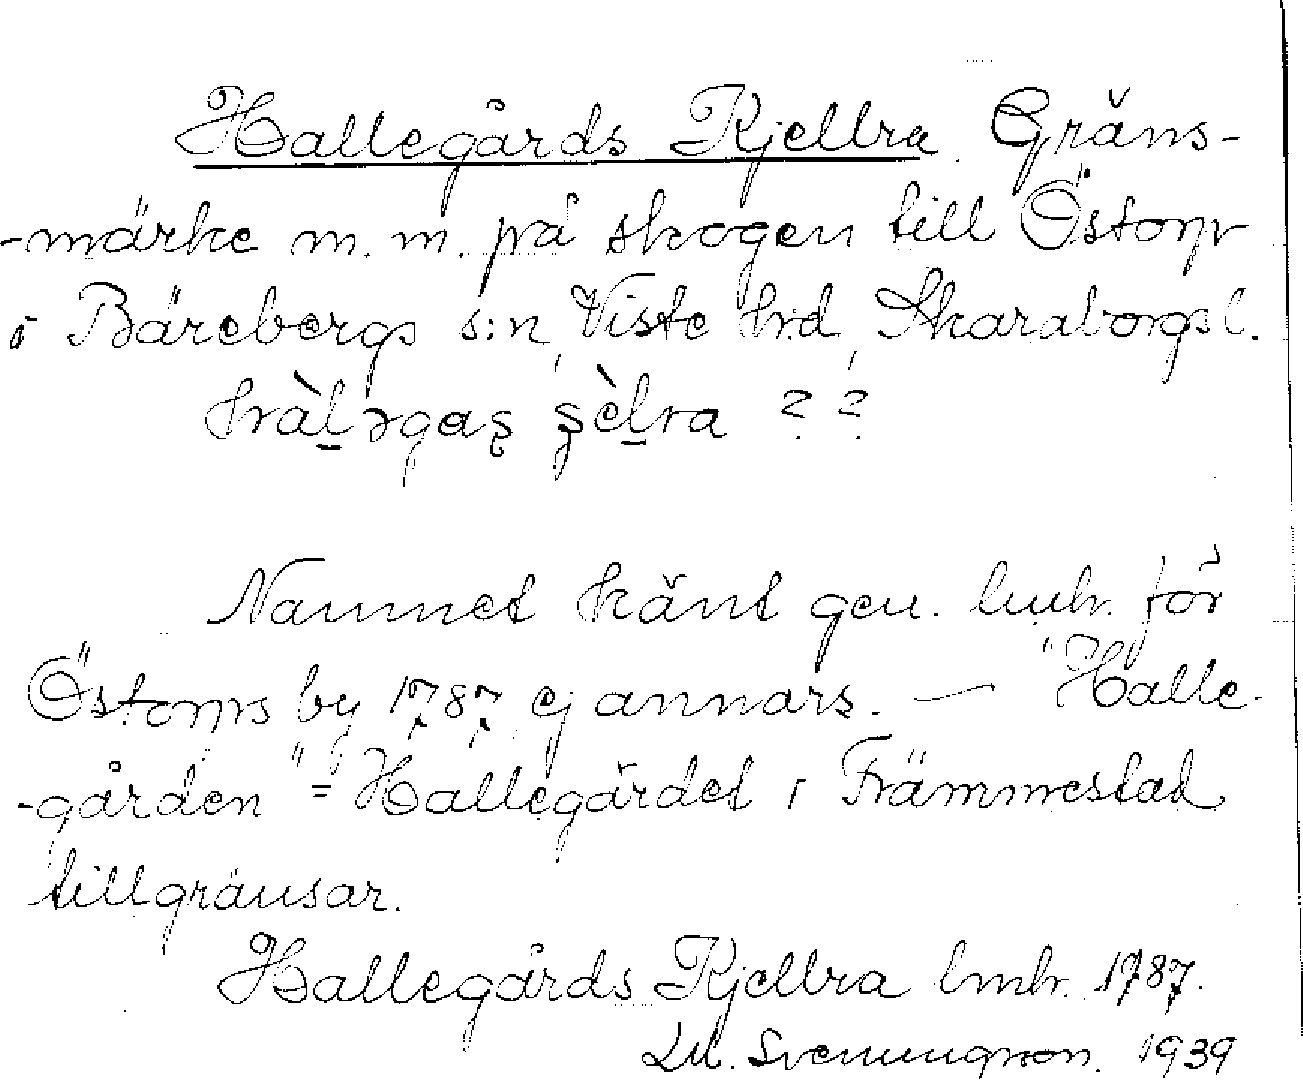 Hallegårds Kjellra. Gräns-
-märke m. m. på skogen till Östorp
i Bärebergs s:n, Viste hrd, Skaraborgs l.
? ?
Namnet känt gen. lmh. för
Östorps by 1787 ej annars. — "Halle-
-gården" = Hallegärdet i Främmestad
tillgränsar.
Hallegårds Kjellra lmh. 1787.
Svenungsson. 1939